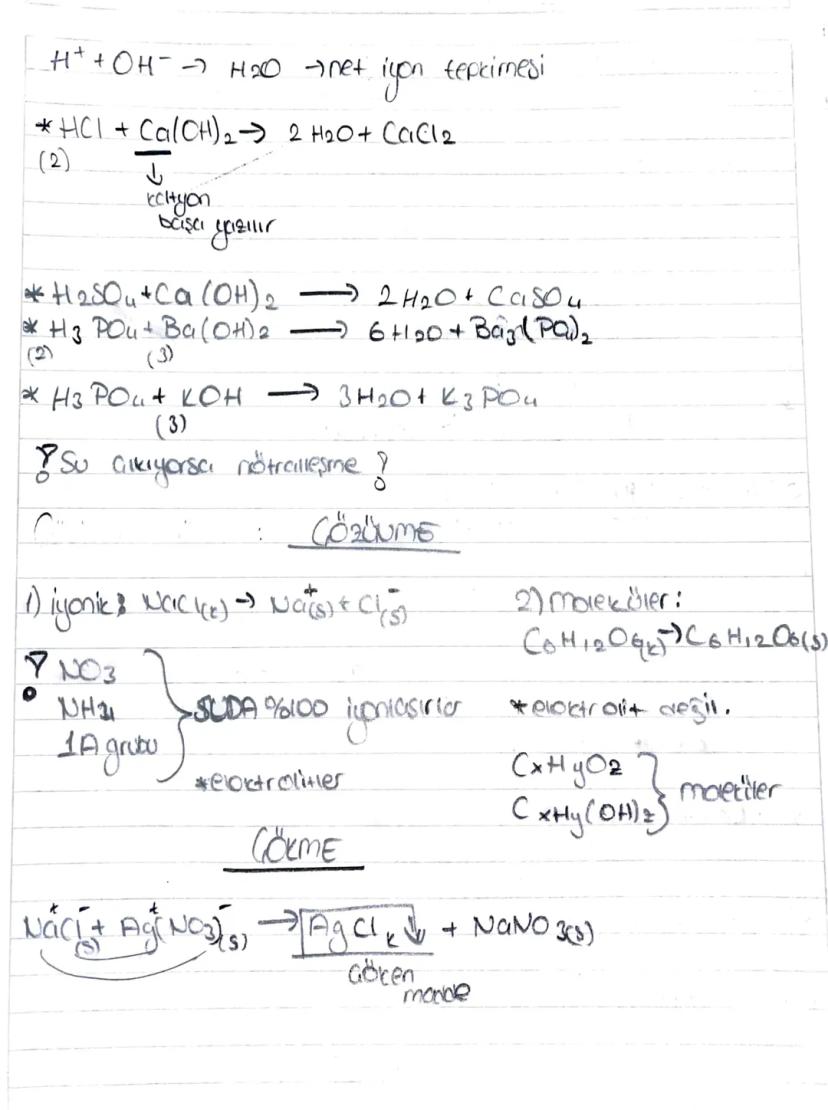 H⁺ + OH⁻ → H2O → net iyon tepkimesi
* HCl + Ca(OH)2 → 2 H2O + CaCl2
(2)
↓
katyon
başa yazılır
* H2SO4 + Ca(OH)2 → 2H2O + CaSO4
* H3PO4 + Ba(OH)2 → 6H2O + Ba3(PO4)2
(2) (3)
* H3PO4 + KOH → 3H2O + K3PO4
(3)
! Su çıkıyorsa nötralleşme !
ÇÖZÜNME
1) iyonik: NaCl(k) → Na⁺(s) + Cl⁻(s)
2) moleküler:
C6H12O6(k) → C6H12O6(s)
! NO3
NH4
1A grubu
SUDA %100 iyonlaşırlar
*elektrolitler
*elektrolit değil.
CxHyOz
CxHy(OH)z
moleküler
ÇÖKME
Na⁺Cl⁻(s) + Ag⁺(NO3)⁻(s) → AgCl k ↓ + NaNO3(s)
Çöken
madde